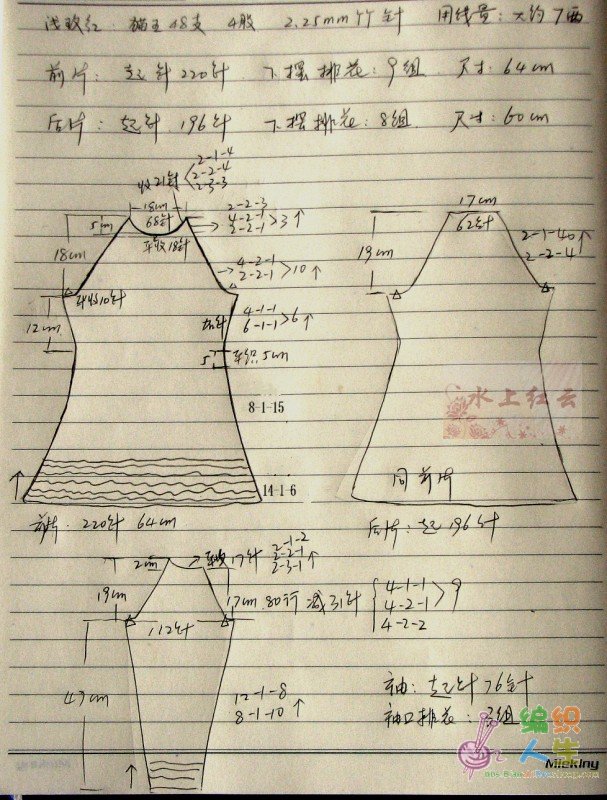 浅玫红: 猫王48支 4股 2.25mm竹针 用线量: 大约7两
前片: 起针220针 下摆排花: 9组 尺寸: 64cm
后片: 起针 196针 下摆排花: 8组 尺寸: 60cm
收21针 2-1-4
2-2-4
2-3-3
18cm
68针
平收18针
5cm
18cm
2-2-3
4-2-1
2-2-1 >3↑
4-2-1
2-2-1 >10↑
平收10针
12cm
加针 4-1-1
6-1-1 >6↑
5 平织5cm
8-1-15
14-1-6
17cm
62针
19cm
2-1-40
2-2-4 ↑
水上红云
同前片
前片: 220针 64cm
后片: 起196针
2cm
平收17针 2-1-2
2-2-1
2-3-1 ↑
19cm
17cm 80行 减31针
4-1-1
4-2-1 >9
4-2-2
112针
43cm
12-1-8
8-1-10 ↑
袖: 起针76针
袖口排花: 3组
编织人生
Miekiny